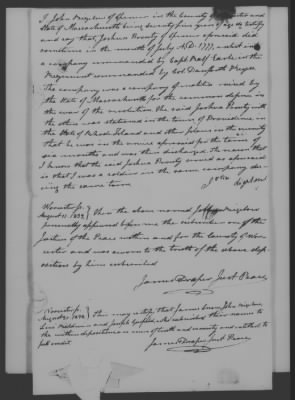 I John            of Spencer in the County of Worcester and
State of Massachusetts being seventy five years of age do testify
and say that, Joshua Prouty of Spencer aforesaid did
sometime in the month of July A.D. 1777, enlist into
a company commanded by Capt Ralf Earle in the
Regiment commanded by Col. Danforth Keyes
The company was a company of militia raised by
the State of Massachusetts for the common defence in
the war of the revolution. The said Joshua Prouty with
the other was stationed in the town of Providence, in
the State of Rhode Island and other places in the vicinity
that he was in the service aforesaid for the term of
six months and was then discharged. The reason that
I know that the said Joshua Prouty served as aforesaid
is that I was a soldier in the same company du-
ring the same term
John
Worcester ss.
August 21. 1832. } Then the above named John
personally appeared before me the subscriber one of the
Justices of the Peace within and for the County of Wor-
cester and was sworn to the truth of the above dep-
osition by him subscribed
James Draper Just Peace
Worcester ss.
August 21. 1832. } This may certify that James            John
           and Joseph            who subscribed their names to
the within depositions are men of truth and veracity and entitled to
full credit
James Draper Just Peace